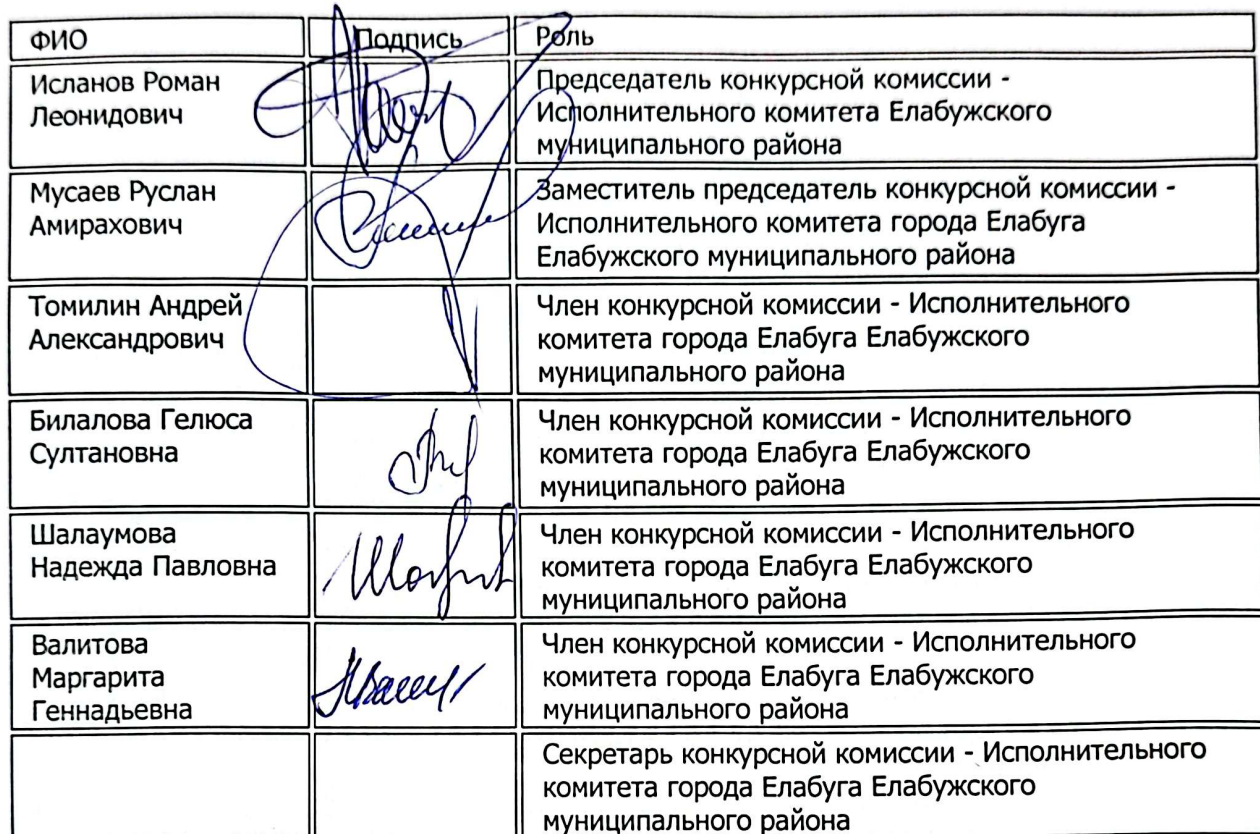 ФИО Подпись Роль
Исланов Роман
Леонидович
Председатель конкурсной комиссии -
Исполнительного комитета Елабужского
муниципального района
Мусаев Руслан
Амирахович
Заместитель председатель конкурсной комиссии -
Исполнительного комитета города Елабуга
Елабужского муниципального района
Томилин Андрей
Александрович
Член конкурсной комиссии - Исполнительного
комитета города Елабуга Елабужского
муниципального района
Билалова Гелюса
Султановна
Член конкурсной комиссии - Исполнительного
комитета города Елабуга Елабужского
муниципального района
Шалаумова
Надежда Павловна
Член конкурсной комиссии - Исполнительного
комитета города Елабуга Елабужского
муниципального района
Валитова
Маргарита
Геннадьевна
Член конкурсной комиссии - Исполнительного
комитета города Елабуга Елабужского
муниципального района
Секретарь конкурсной комиссии - Исполнительного
комитета города Елабуга Елабужского
муниципального района